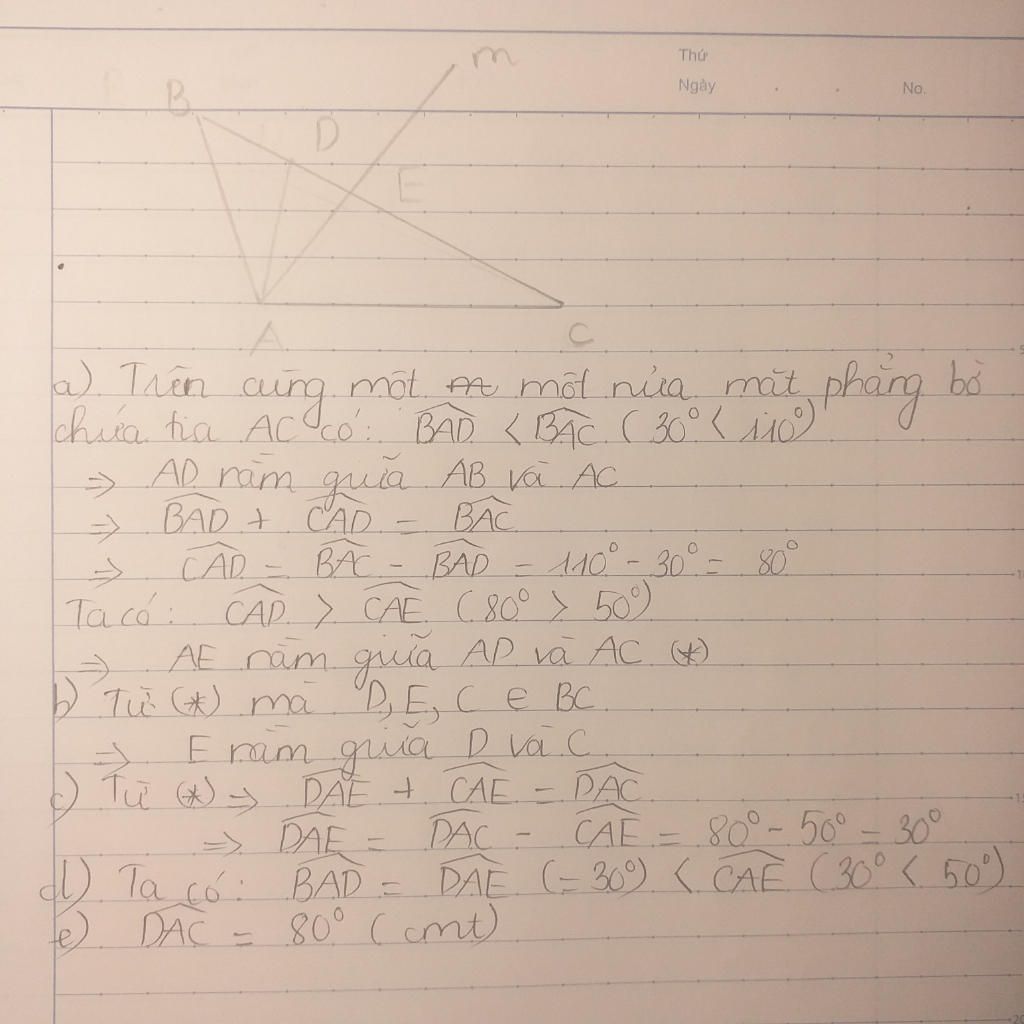 m
Thứ
B
Ngày
No.
D
E
A
C
a) Trên cùng một một nửa mặt phẳng bờ
chứa tia AC có: BAD < BAC (30° < 110°)
=> AD nằm giữa AB và AC
=> BAD + CAD = BAC
=> CAD = BAC - BAD = 110° - 30° = 80°
Ta có: CAD > CAE (80° > 50°)
=> AE nằm giữa AD và AC (*)
b) Từ (*) mà D, E, C ∈ BC
=> E nằm giữa D và C
c) Từ (*) => DAE + CAE = DAC
=> DAE = DAC - CAE = 80° - 50° = 30°
d) Ta có: BAD = DAE (=30°) < CAE (30° < 50°)
e) DAC = 80° (cmt)